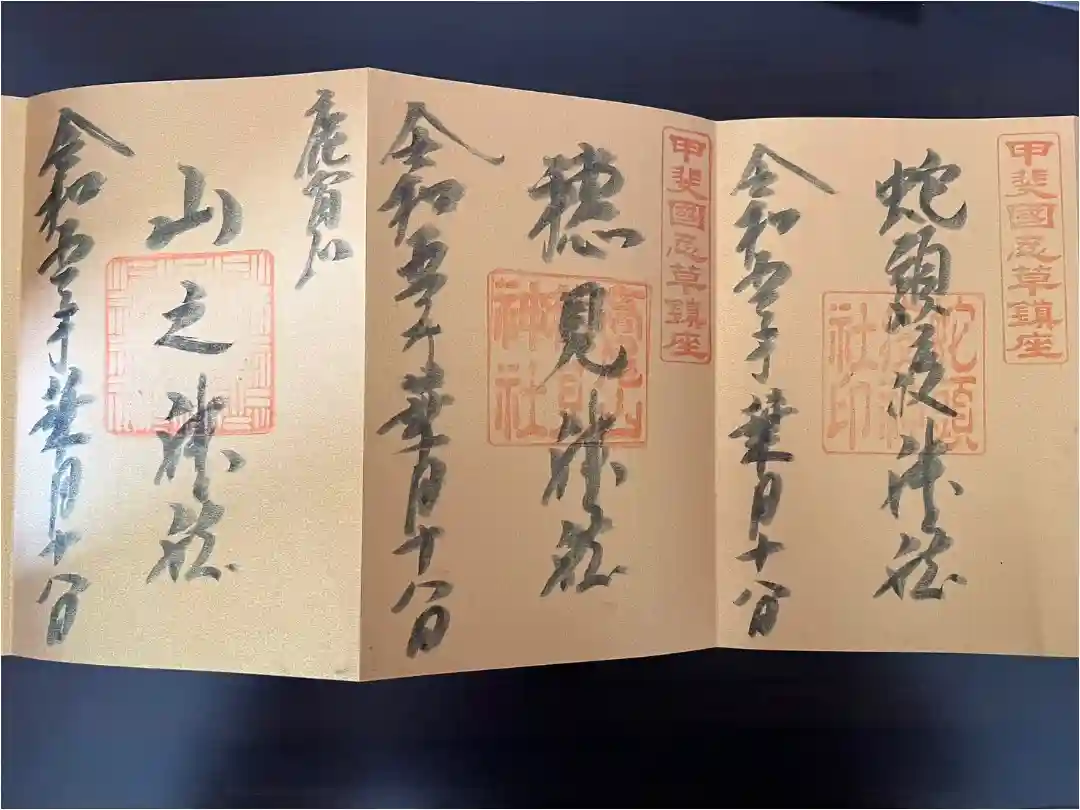 甲斐國忍草鎮座
蛇頭疫神社
令和五年葉月十八日
甲斐國忍草鎮座
穂見神社
令和五年葉月十八日
山之神社
令和五年葉月十八日